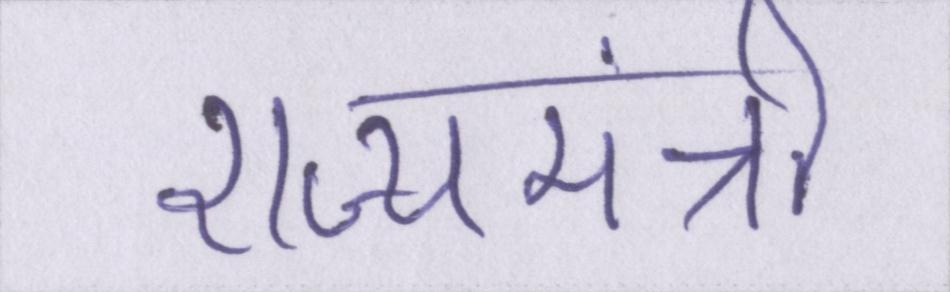 राज्यमंत्री